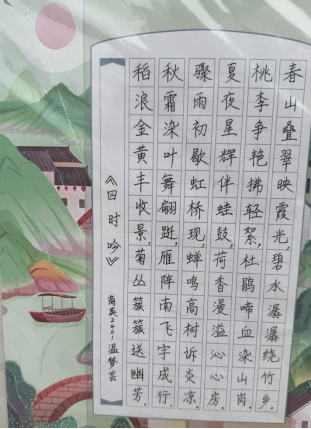 春山叠翠映霞光，碧水潺潺绕竹乡。
桃李争艳拂轻絮，杜鹃啼血染山岗。
夏夜星辉伴蛙鼓，荷香漫溢沁心房。
骤雨初歇虹桥现，蝉鸣高树诉炎凉。
秋霜染叶舞翩跹，雁阵南飞字成行。
稻浪金黄丰收景，菊丛簇簇送幽芳。
《四时吟》
商英 温梦芸